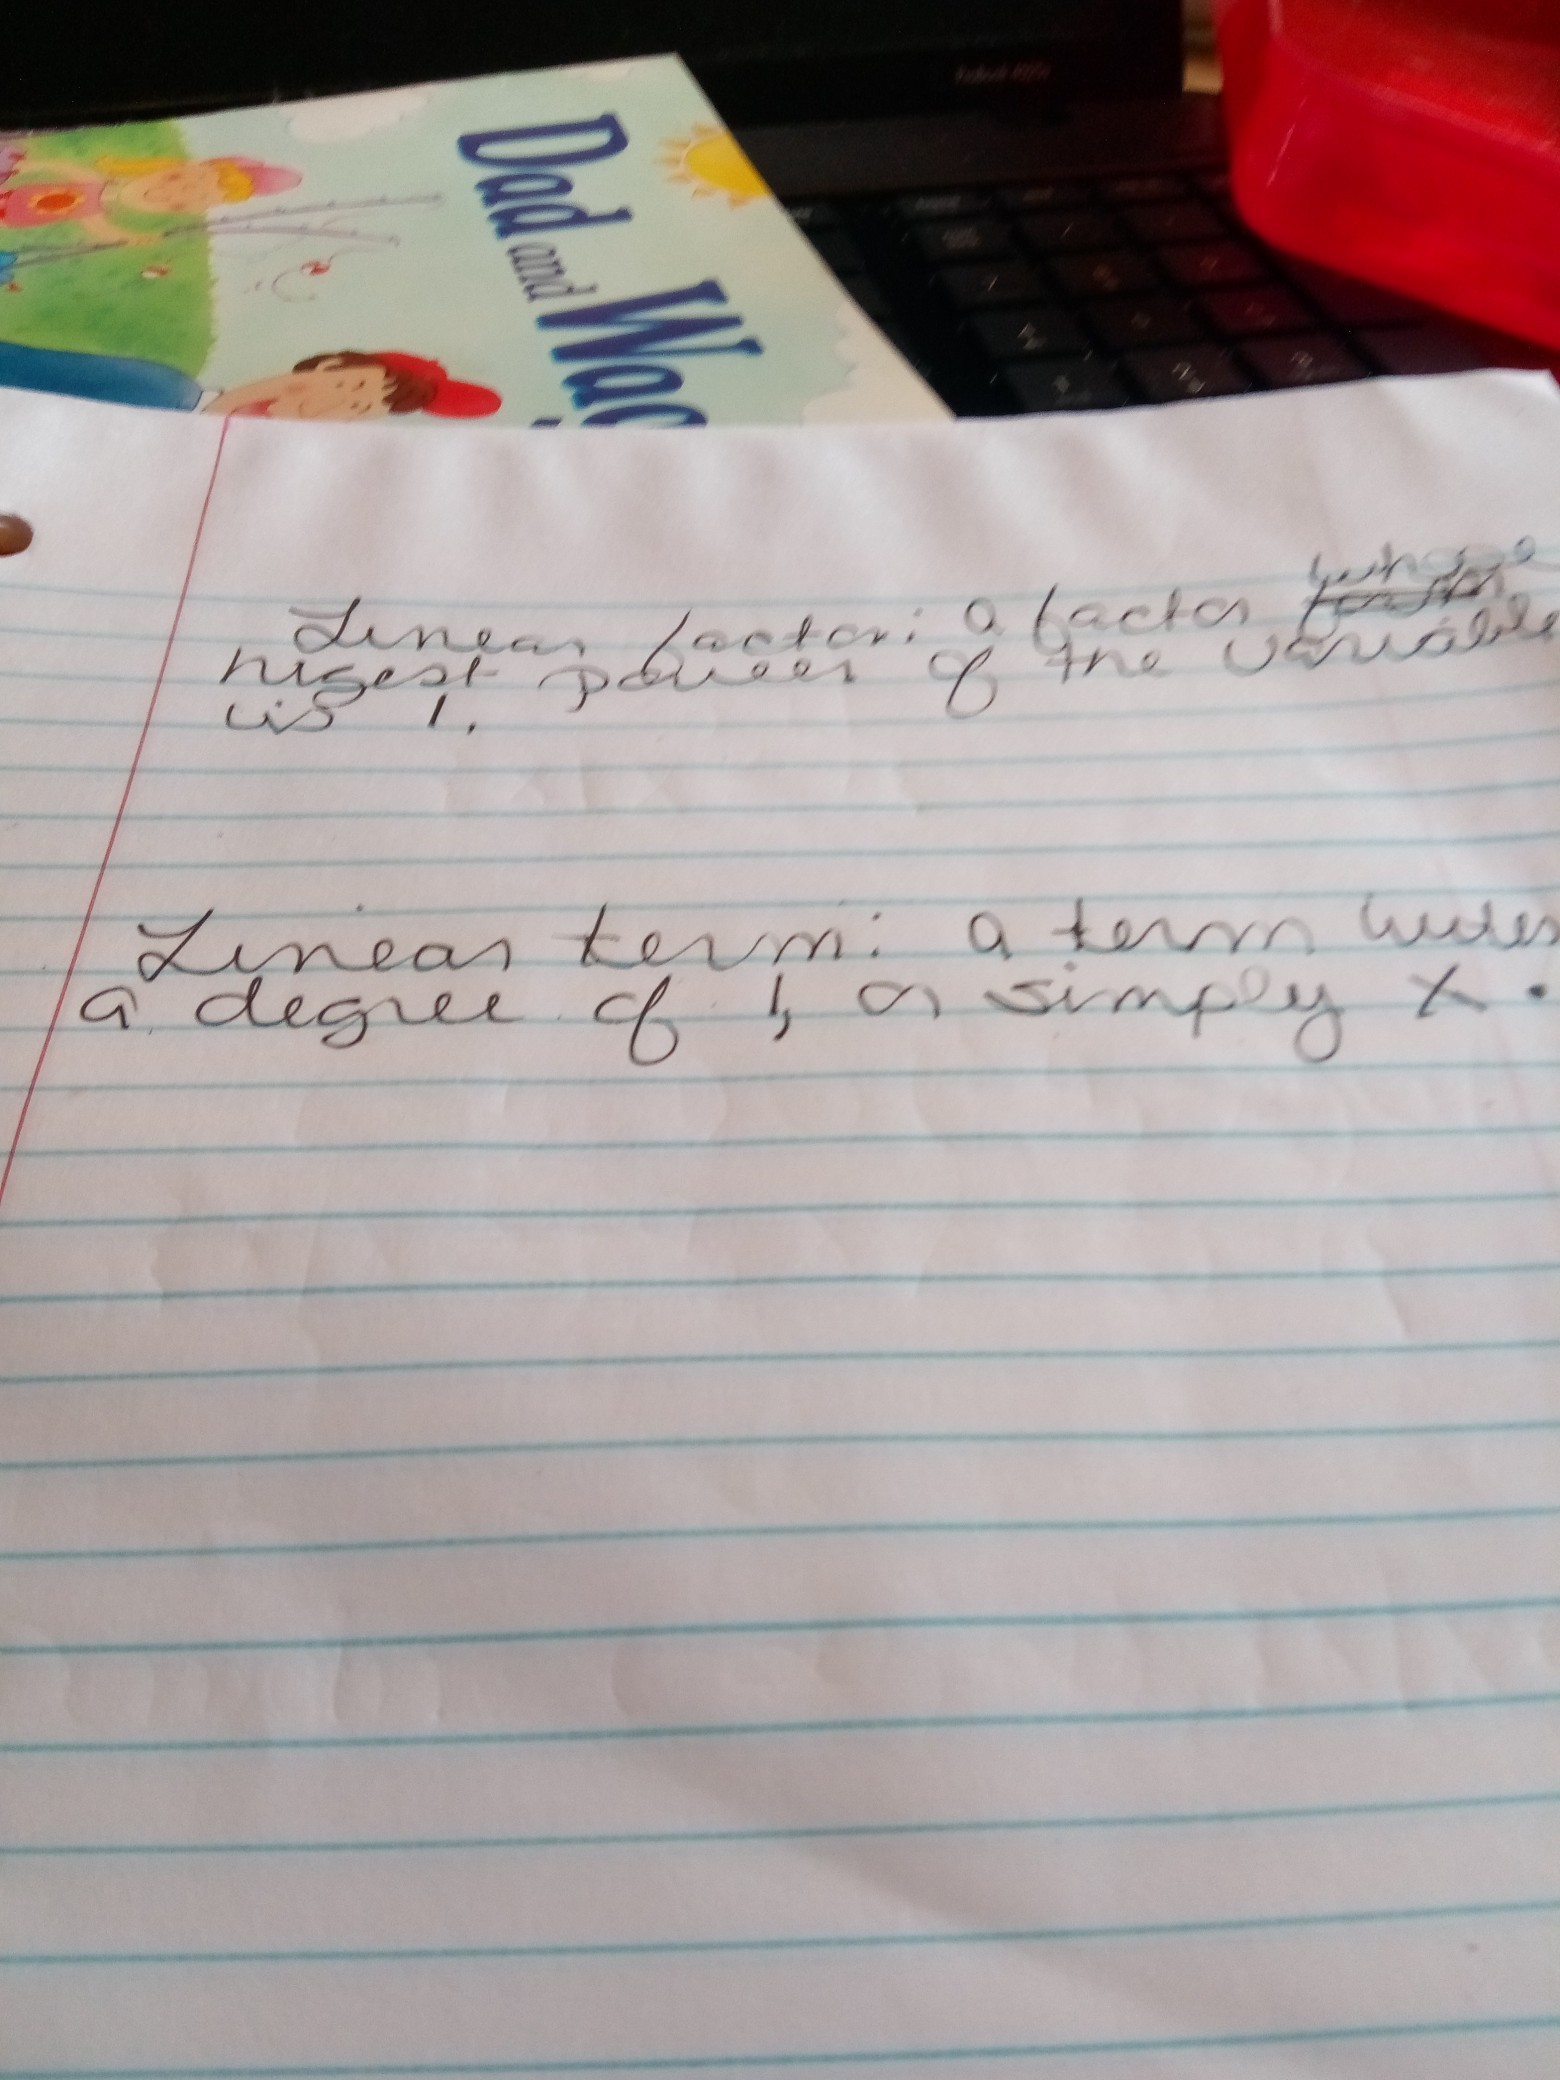 Dad and Wag
Linear factor: a factor whose
higest power of the variable
is 1.
Linear term: a term
a degree of 1, or simply x.